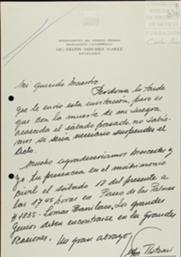 Mi querido Maestro:
Perdona lo tarde
que te envío esta invitación, pero es
que con la muerte de mi suegra
acaecida el sábado pasado no sabía-
mos si sería necesario suspender el
acto.
Mucho agradeceríamos Mercedes y
yo tu presencia en el matrimonio
civil el sábado 18 del presente a
las 17.05 horas en Paseo de las Palmas
#1835 - Lomas Barrilaco. Los grandes
Genios deben encontrarse en las Grandes
Ocasiones. Un gran abrazo